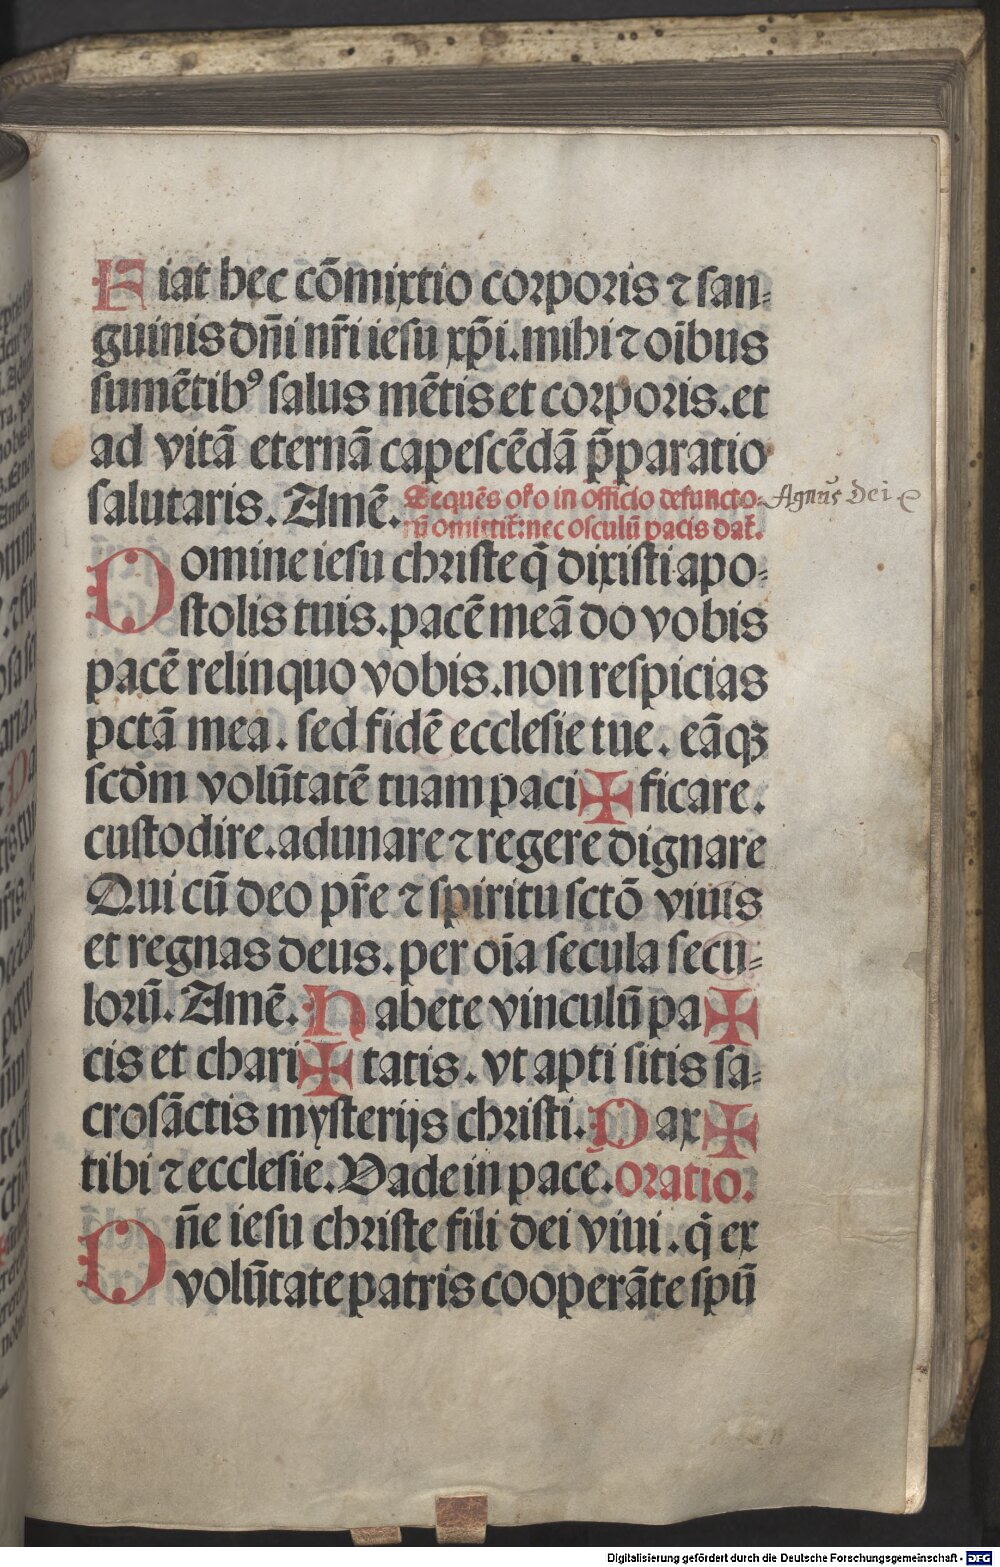 Fiat hec cōmixtio corporis ⁊ san⸗
guinis dn̄i nr̄i iesu xp̄i. mihi ⁊ oībus
sumētibꝰ salus mētis et corporis. et
ad vitā eternā capescēdā p̄paratio
salutaris. Amē. Sequēs oro in officio defuncto⸗
rū omittit̄: nec osculū pacis dat̄.
Agnus Dei
Domine iesu christe q̄ dixisti apo⸗
stolis tuis. pacē meā do vobis
pacē relinquo vobis. non respicias
pctā mea. sed fidē ecclesie tue. eāqꝫ
scdm̄ volūtatē tuam paci✠ficare.
custodire. adunare ⁊ regere dignare
Qui cū deo pr̄e ⁊ spiritu sctō viuis
et regnas deus. per oīa secula secu⸗
lorū. Amē. Habete vinculū pa✠
cis et chari✠tatis. vt apti sitis sa⸗
crosāctis mysterijs christi. Pax✠
tibi ⁊ ecclesie. Vade in pace. oratio.
Dn̄e iesu christe fili dei viui. q̄ ex
volūtate patris cooperāte spū
Digitalisierung gefördert durch die Deutsche Forschungsgemeinschaft - DFG